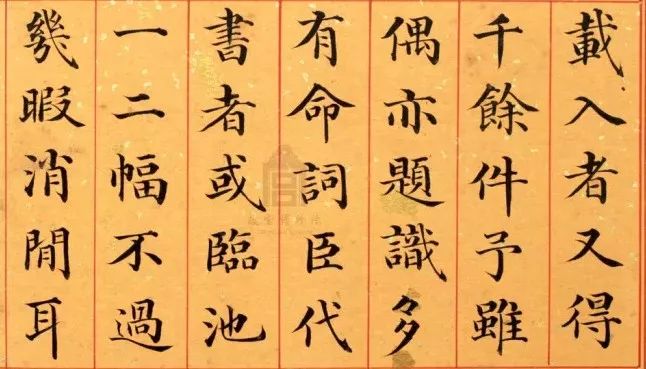 載入者又得
千餘件予雖
偶亦題識多
有命詞臣代
書者或臨池
一二幅不過
㡬暇消閒耳